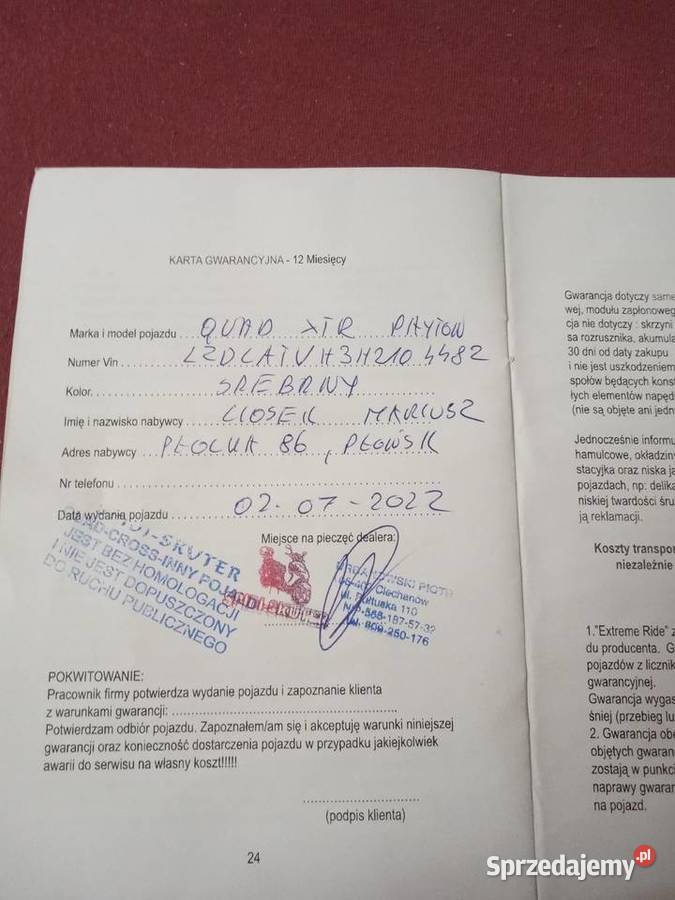 KARTA GWARANCYJNA - 12 Miesięcy
Marka i model pojazdu QUAD XTR PAYTON
Numer Vin
Kolor SREBRNY
Imię i nazwisko nabywcy MARIUSZ
Adres nabywcy 86, PŁOŃSK
Nr telefonu
Data wydania pojazdu 02-07-2022
Miejsce na pieczęć dealera:
SKUTER
QUAD-CROSS-INNY POJAZD
JEST BEZ HOMOLOGACJI
I NIE JEST DOPUSZCZONY
DO RUCHU PUBLICZNEGO
PIOTR
Ciechanów
ul. Pułtuska 110
POKWITOWANIE:
Pracownik firmy potwierdza wydanie pojazdu i zapoznanie klienta
z warunkami gwarancji:
Potwierdzam odbiór pojazdu. Zapoznałem/am się i akceptuję warunki niniejszej
gwarancji oraz konieczność dostarczenia pojazdu w przypadku jakiejkolwiek
awarii do serwisu na własny koszt!!!!!
(podpis klienta)
24
Gwarancja dotyczy same
wej, modułu zapłonoweg
cja nie dotyczy : skrzyni
sa rozrusznika, akumula
30 dni od daty zakupu
i nie jest uszkodzeniem
społów będących konst
łych elementów napęd
(nie są objęte ani jedn
Jednocześnie informu
hamulcowe, okładzin
stacyjka oraz niska ja
pojazdach, np: delika
niskiej twardości śru
ją reklamacji.
Koszty transpor
niezależnie
1."Extreme Ride" z
du producenta. G
pojazdów z licznik
gwarancyjnej.
Gwarancja wygas
śniej (przebieg lu
2. Gwarancja obe
objętych gwaran
zostają w punkci
naprawy gwarar
na pojazd.
Sprzedajemy.pl